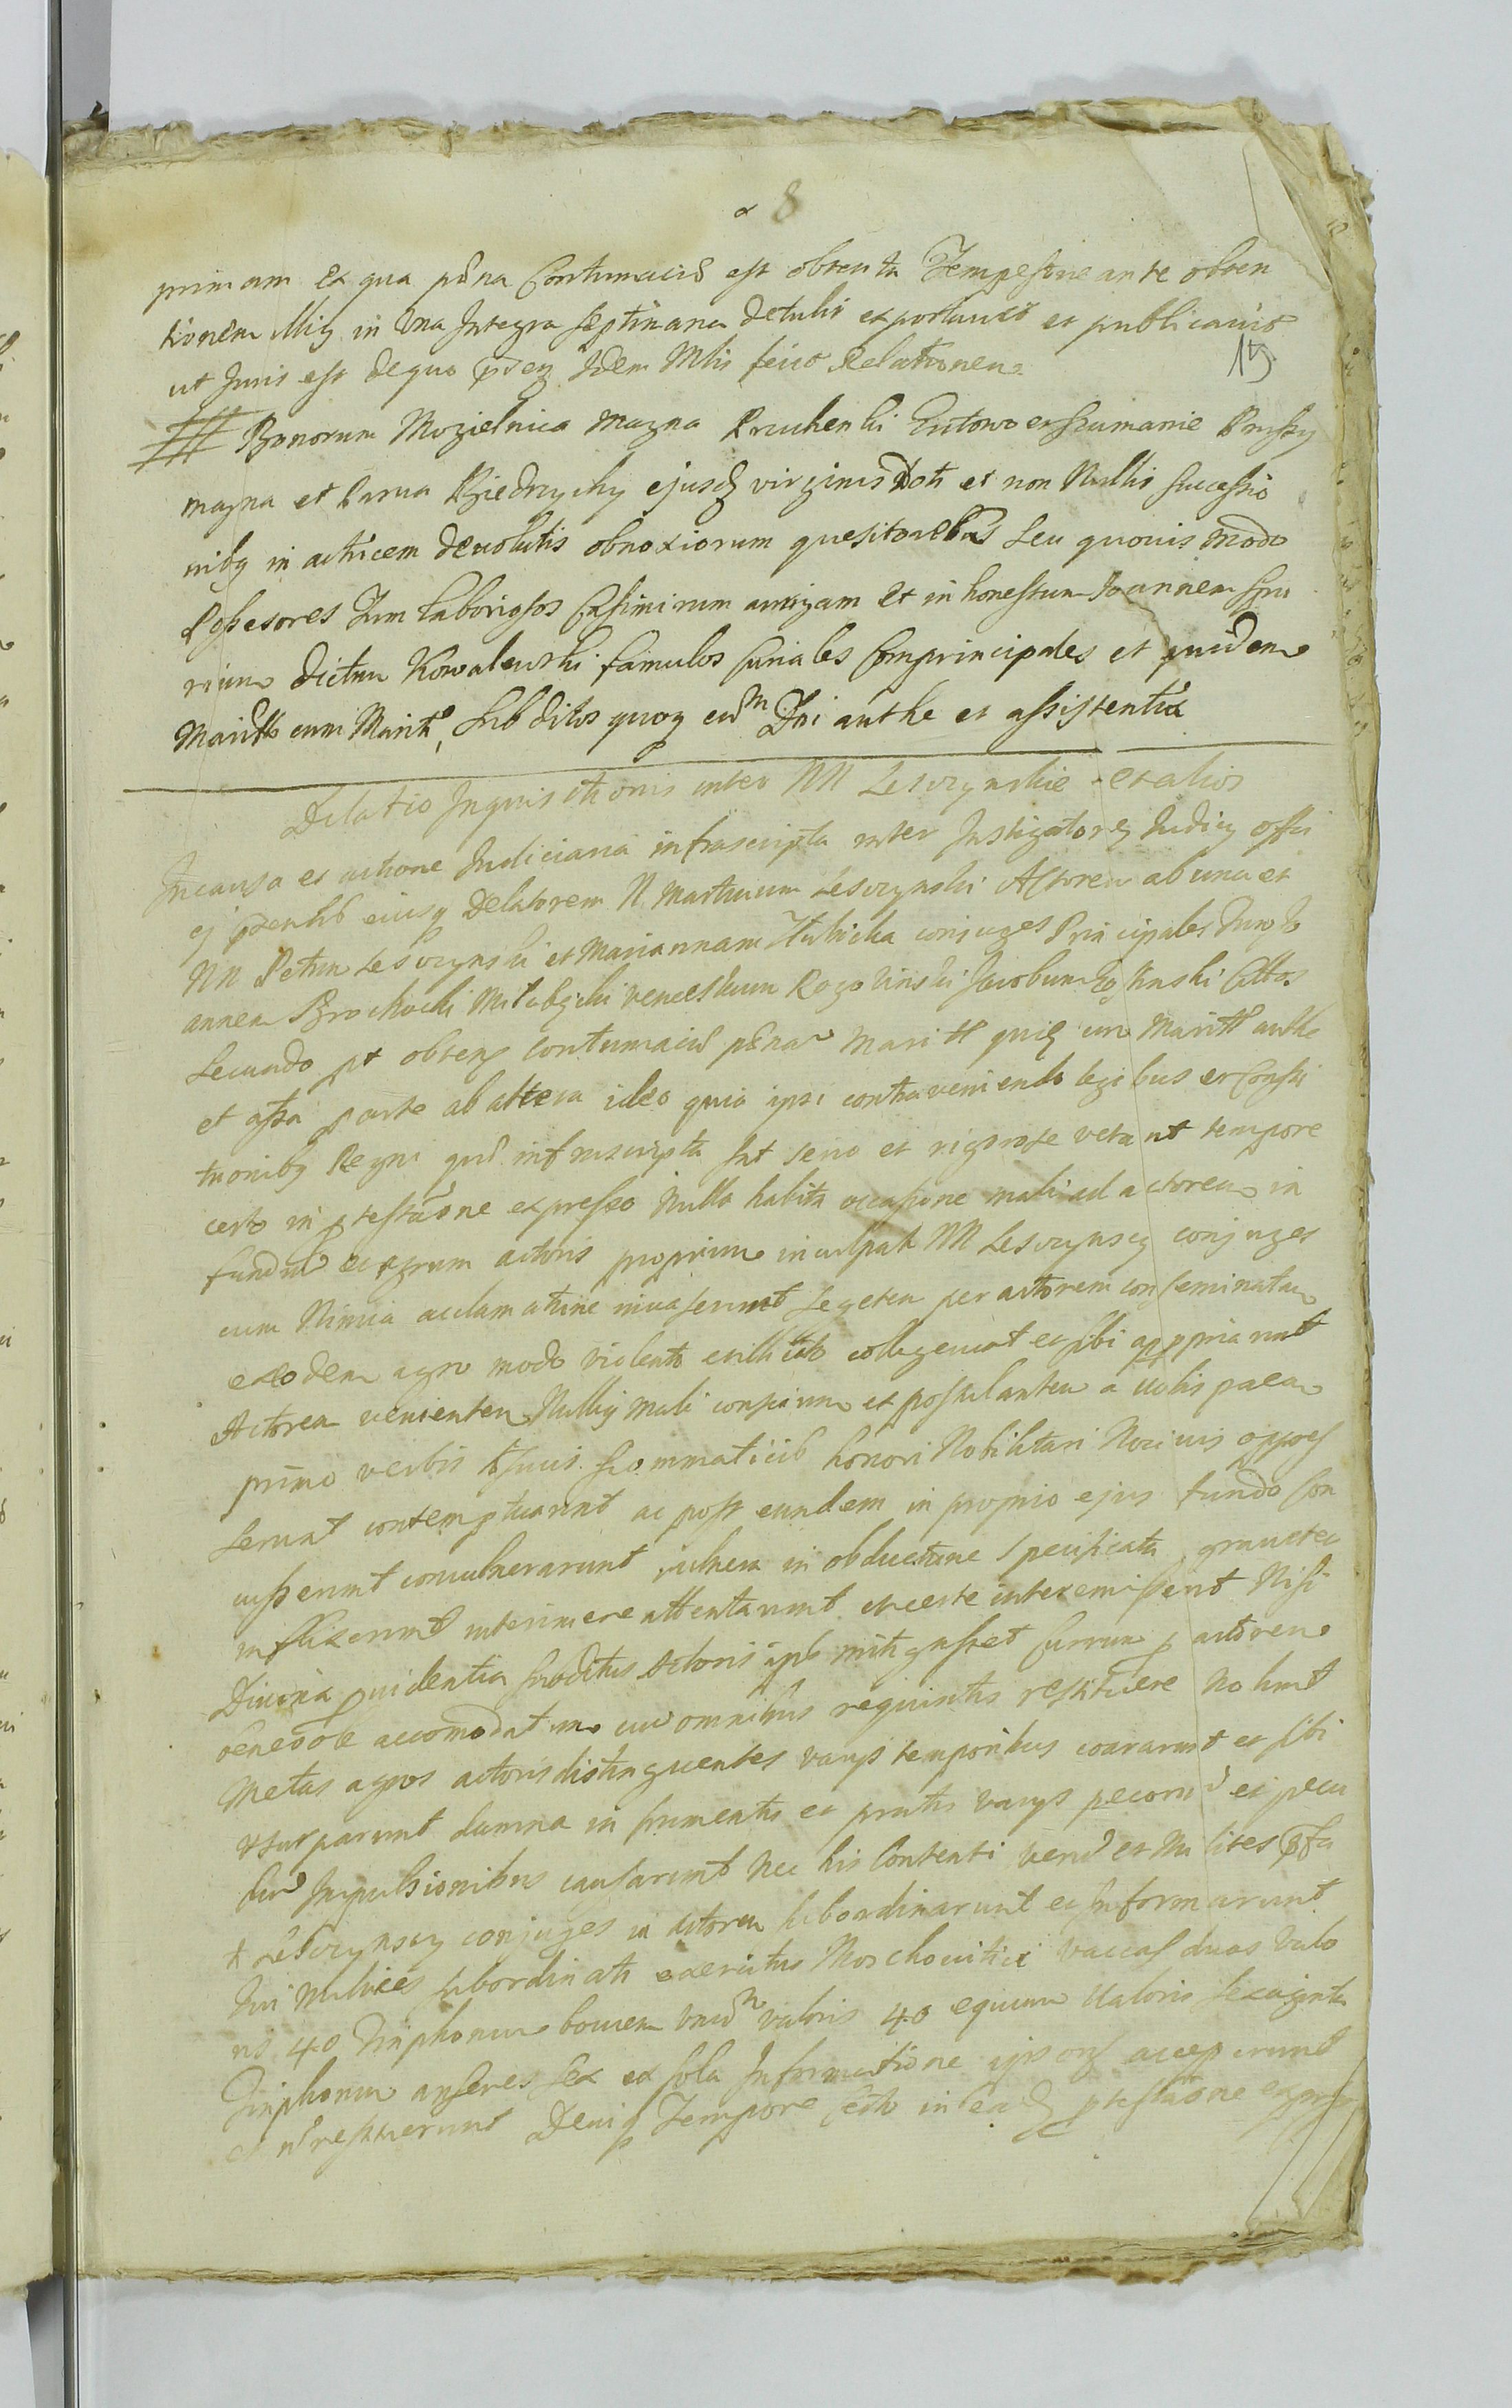 8
primam ex qua pena Contumacie est obtenta Tempestive ante obten
tionem illiq in Una Integra septimana detulit exportauit et publicauit
15
ut Juris est de quo Idem Mlis fecit Relationem
Bonorum Mozielnica magna et Szumanie Prussy
magna et Parua Biedrzychy ejusdq virginis Doti et non Nullis successio
nibq in actricem deuolutis obnoxiorum quesitoribus seu quouis modo
Possesores Tum laboriosos Casimirum aurigam et in honestum Joannem spu
rium dictum Kowalewski famulos Curiales Comprincipales et quidem
Marittas cum Marito, Subditos quoq eud^m Dni authe et assistentia
Delatio Inquisitionis inter NN Lesczynskie et alios
In causa et actione Judiciaria infrascripta inter Instigatorq Judicq offi
ej eiusq Delatorem N. Martinum Lesczynski Actorem ab una et
NN Petrum Lesczynski et Mariannam Hubicka conjuges Principales Tum Jo
annem Brochocki Jacobum Cttos
Secundo pt obtenq contumacie penam Maritt cum Maritt authe
et assa parte ab altera ideo quia ipsi contraueniendo legibus et Consti
tuonibq Regni que infrascripta sut serio et rigorose vetant tempore
certo in ptestaone expresso Nulla habita occasione mali ad actorem in
fundum et agrum actoris proprium inculpati NN Lesczynscy conjuges
cum Nimia acclamatione inuaserunt Segetem per actorem conseminatam
ex eodem agro modo violento collegerunt et sibi appropriarunt
Actorem venientem Nulliq mali conscium et postulantem a
primo verbis honori Nobilitari Nociuis
serunt contemptuarunt ac post eundem in proprio ejus fundo con
cusserunt conuulnerarunt vulnera in obductione specificata grauiter
inflixerunt interimere attentarunt et certe interemissent Nisi
Diuina puidentia subditus Actoris currum p actorem
beneuole accomodatum cum omnibus requisitis restituere Nolunt
Metas agros actoris distinguentes varijs temporibus coararunt et sibi
Usurparunt damna in frumentis et pratis varijs pecorum et pecu
dum Impulsionibus causarunt Nec his Contenti verum et Milites
Lesczynscy conjuges in actorem subordinarunt et Informarunt
Qui Milices subordinati exercitus Moschouitici vaccas duas valo
ris 40 Timphonum bouem unum valoris 40 equum Ualoris sexaginta
Timphonum anseres sex ex sola Informatione acceperunt
et restituerunt Deniq Tempore certo in eadq ptestaone